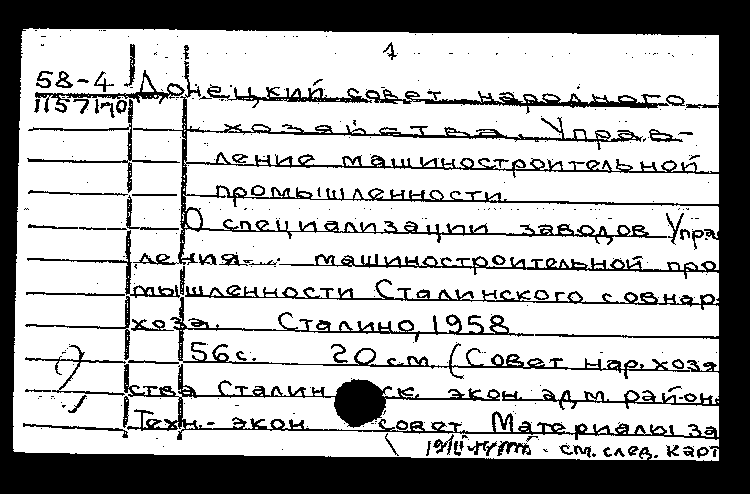 1
58-4 Донецкий совет народного
1157170
хозяйства. Управ-
ление машиностроительной
промышленности.
О специализации заводов Упра
ления... машиностроительной про
мышленности Сталинского совнар
хоза. Сталино, 1958
56 с. 20 см. (Совет нар. хозя
ства Сталинск. экон. адм. район
Техн.- экон. совет. Материалы за
см. след. карт